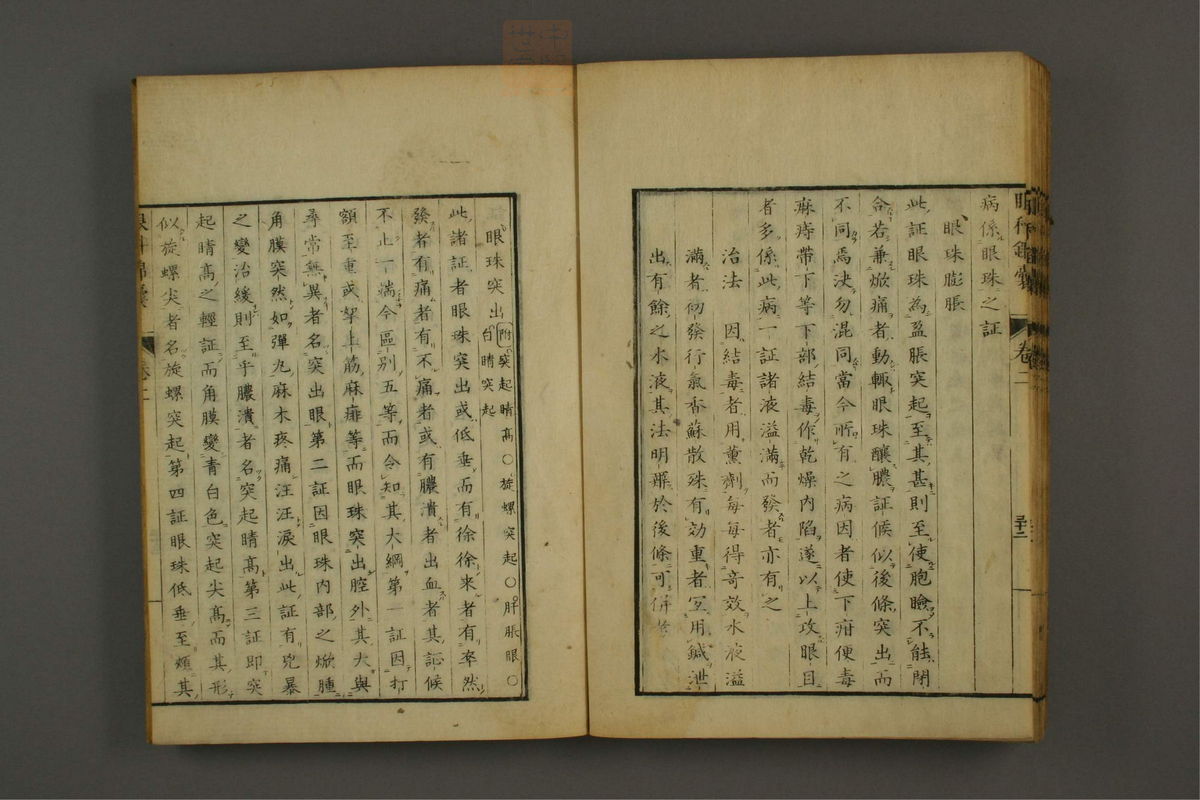 眼科錦囊 卷二
病係眼珠之証
眼珠膨脹
此証眼珠為盈脹突起至其甚則至使胞瞼不能閉
合若兼焮痛者動輒眼珠釀膿証候似後條突出而
不同焉決勿混同當今所有之病因者使下疳便毒
麻痔帶下等下部結毒作乾燥內陷遂以上攻眼目
者多係此病一証諸液溢滿而發者亦有之
治法 因結毒者用薰劑每每得奇效水液溢
滿者仞發行氣香蘇散殊有効重者宜用鍼泄
出有餘之水液其法明辨於後條可併
眼珠突出 附 突起睛高○旋螺突起○肝脹眼○
白睛突起
此諸証者眼珠突出或低垂而有徐徐來者有卒然
發者有痛者有不痛者或有膿潰者出血者其証候
不止一端今區別五等而令知其大綱第一証因打
額至重或挐上筋麻痱等而眼珠突出腔外其大與
尋常無異者名突出眼第二証因眼珠內部之焮腫
角膜突然如彈丸麻木疼痛汪汪淚出此証有兇暴
之變治緩則至乎膿潰者名突起睛高第三証即突
起睛高之輕証而角膜變青白色突起尖高而其形
似旋螺尖者名旋螺突起第四証眼珠低垂至頰其